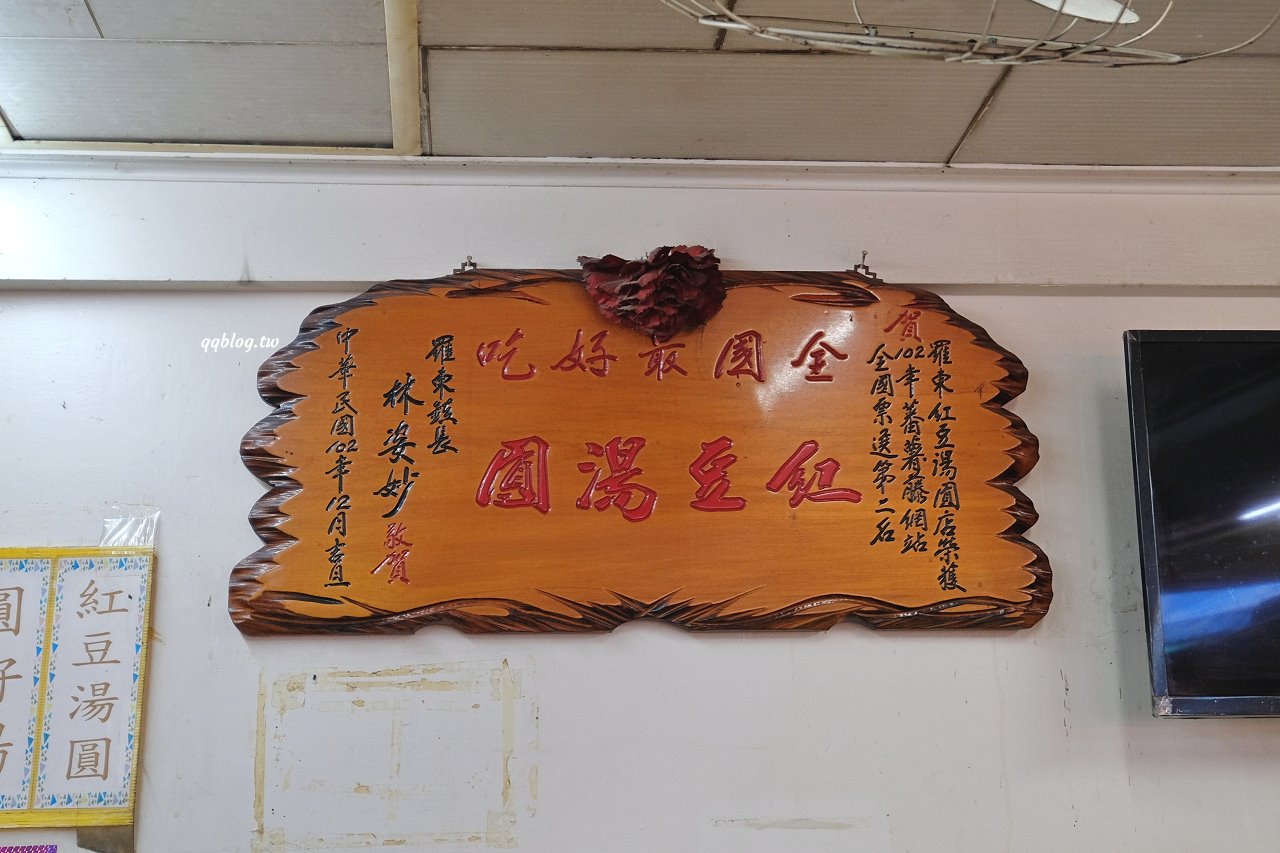 賀
羅東紅豆湯圓店榮獲
102年蕃薯藤網站
全國票選第二名
全國最好吃
紅豆湯圓
羅東鎮長
林姿妙
敬賀
中華民國102年12月吉旦
qqblog.tw
紅豆湯圓
圓